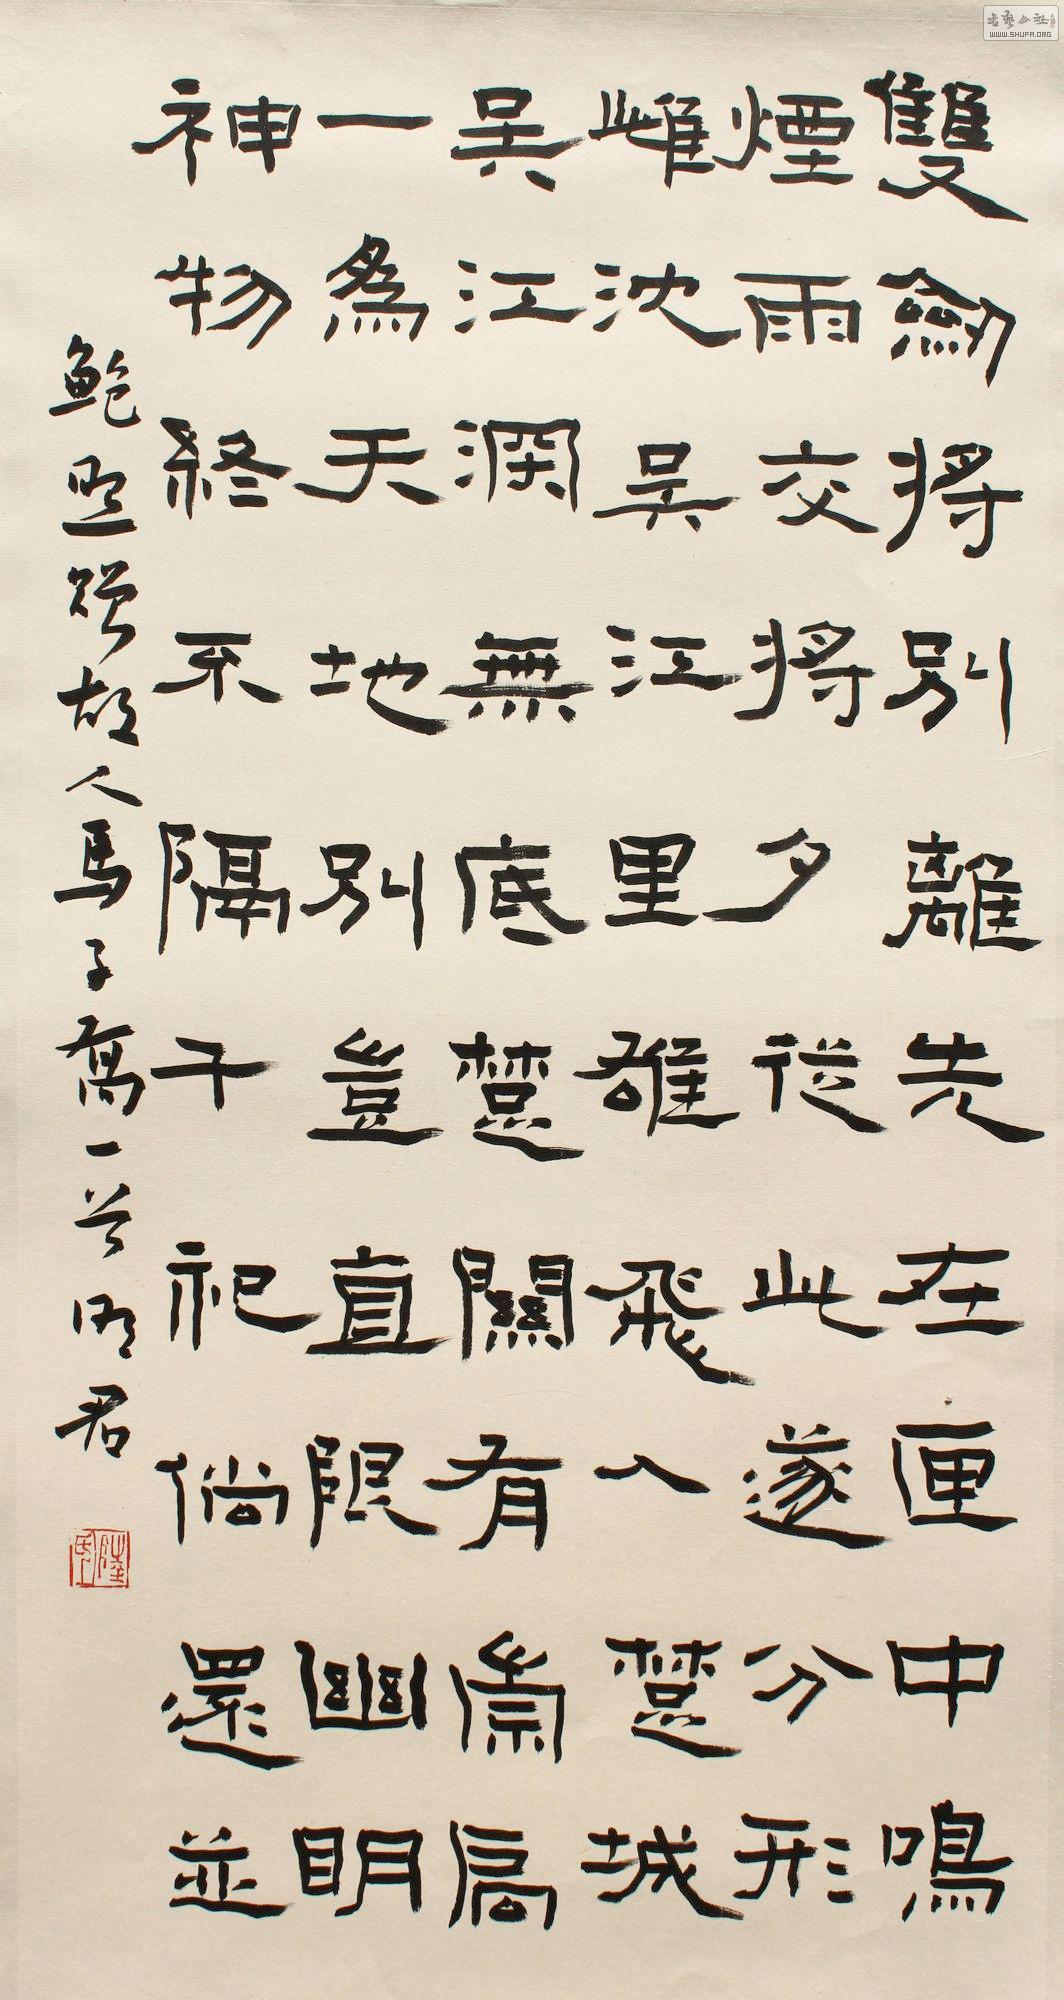 雙劍將別離先在匣中鳴
煙雨交將夕從此遂分形
雌沈吳江里雄飛入楚城
吳江深無底楚關有崇扃
一為天地別豈直限幽明
神物終不隔千祀倘還並
鮑照贈故人馬子喬一首 陸明君
WWW.SHUFA.ORG